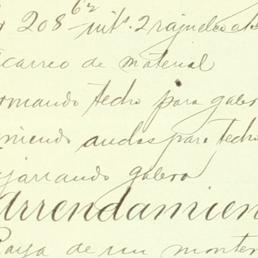 208 62 mts. 2 rajuelea
carreo de material
omando tedro para galer
niendo andas para tedro
jarrando galera
Arrendamien
Raya de un monter